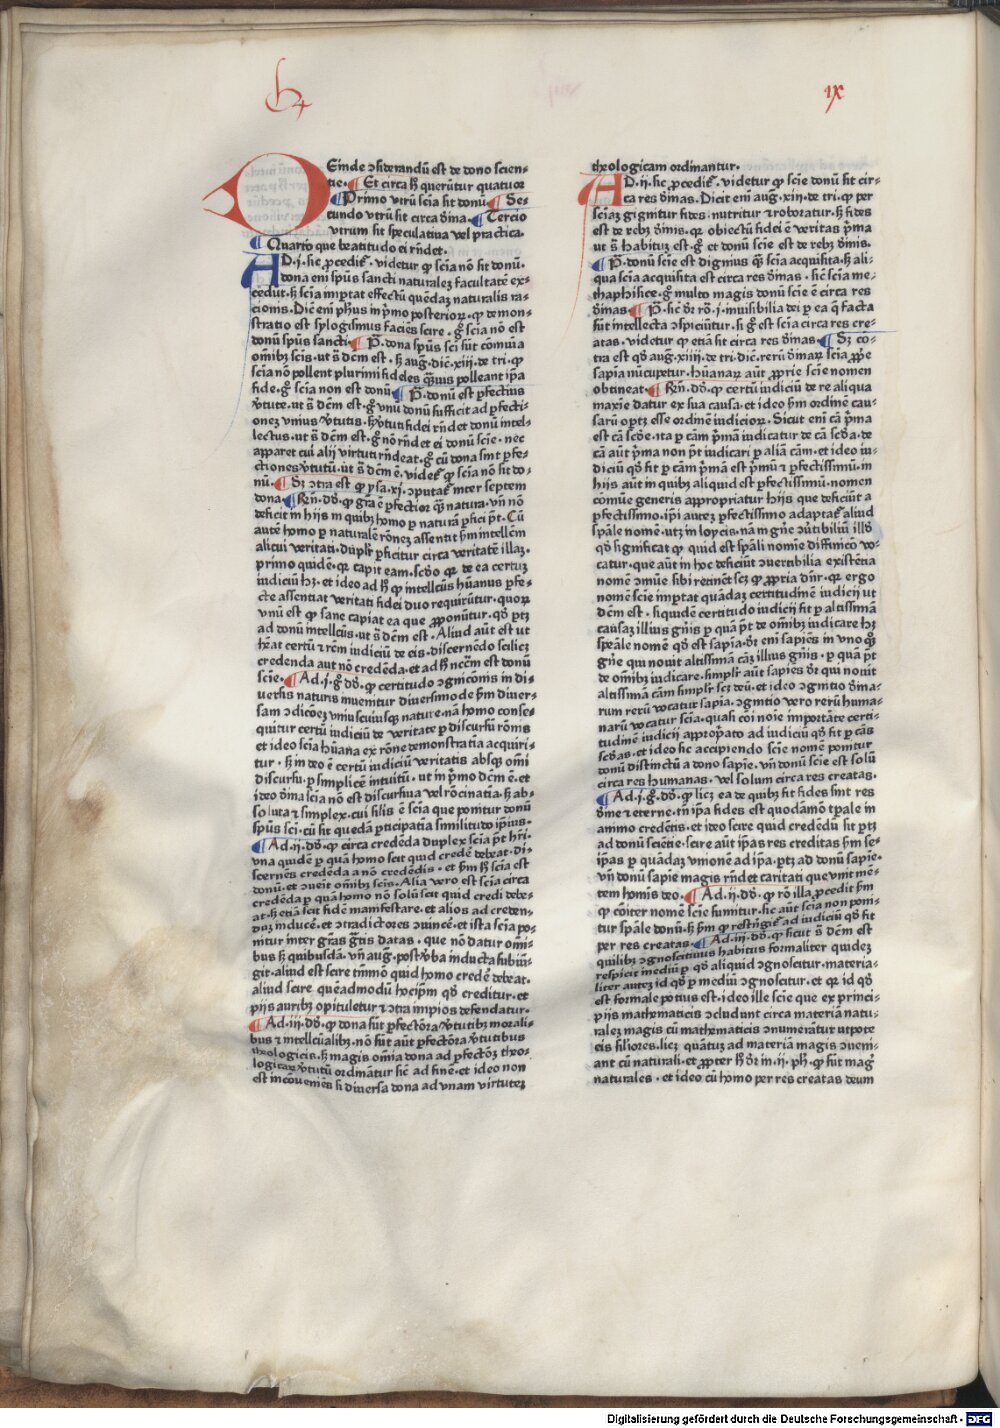 ix
DEinde ɔsiderandū est de dono scien-
tie. Et circa hͦ querūtur quatuor
Primo vtrū scīa sit donū. Se-
cundo vtrū sit circa dīna. Tercio
vtrum sit speculatiua vel practica.
Quarto que beatitudo ei rn̄det.
AD.i.sic ꝓcediť. videtur ꝙ scīa nō sit donū.
dona enī spūs sancti naturaleꝫ facultatē ex-
cedūt. sꝫ scīa imꝑtat effectū quēdaꝫ naturalis ra-
cionis. Diċ enī pħus in pͥmo posterioꝝ. ꝙ demon-
stratio est sylogismus faciēs scire. gͦ scīa nō est
donū spūs sancti. P̄. dona spūs scī sūt cōmūia
om̄ibꝫ scīs. vt s̄ dc̄m est. sꝫ auḡ. diċ.xiii.de tri. ꝙ
scīa nō pollent plurimi fideles qͣ̄uis polleant ip̄a
fide. gͦ scīa non est donū. P̄. donū est ꝑfectius
v̓tute. vt s̄ dc̄m est. gͦ vnū donū sufficit ad ꝑfecti-
oneꝫ vnius v̓tutis. sꝫ v̓tuti fidei rn̄det donū intel-
lectus. vt s̄ dc̄m est. gͦ nō rn̄det ei donū scīe. nec
apparet cui alij virtuti rn̄deat. gͦ cū dona sint ꝑfe-
ctiones v̓tutū. vt s̄ dc̄m ē. videť ꝙ scīa nō sit do-
nū. Sꝫ ɔtra est ꝙ ysa.xi. ɔputať inter septem
dona. Rn̄. dō. ꝙ grā ē ꝑfectior qͣ̄ natura. vn̄ nō
deficit in hijs in quibꝫ homo ꝑ naturā ꝑfici pt̄. Cū
autē homo ꝑ naturalē rōneꝫ assentit ẜm intellc̄m
alicui veritati. duplr̄ ꝑficitur circa veritatē illaꝫ.
primo quidē. qꝛ capit eam. scd̄o qꝛ de ea certuꝫ
iudiciū hꝫ. et ideo ad hͦ ꝙ intellcūs hūanus ꝑfe-
cte assentiat veritati fidei duo requirūtur. quoꝝ
vnū est ꝙ sane capiat ea que ꝓponūtur. qd̄ ꝑtꝫ
ad donū intellcūs. vt s̄ dc̄m est. Aliud aūt est vt
hēat certū ⁊ rc̄m iudiciū de eis. discernēdo scilicꝫ
credenda aut nō credēda. et ad hͦ necc̄m est donū
scīe. Ad.i.gͦ dō. ꝙ certitudo ɔgnicōnis in di-
uersis naturis inuenitur diuersimode ẜm diuer-
sam ɔdicōeꝫ vniuscuiusqꝫ nature. nā homo conse-
quitur certū iudiciū de veritate ꝑ discursū rōnis
et ideo scīa hūana ex rōne demonstratia acquiri-
tur. sꝫ in deo ē certū iudiciū veritatis absqꝫ om̄i
discursu. ꝑ simplicē intuitū. vt in pͥmo dc̄m ē. et
ideo dīna scīa nō est discursiua vel rōcinatia. sꝫ ab-
soluta ⁊ simplex. cui silis ē scīa que ponitur donū
spūs scī. cū sit quedā ꝑticipatia similitudo ip̄ius.
Ad.ii.dō. ꝙ circa credēda duplex scīa pt̄ hr̄i.
vna quidē ꝑ quā homo scit quid credē debeat. di-
scernēs credēda a nō credēdis. et ẜm hͦ scīa est
donū. et ɔueit om̄ibꝫ scīs. Alia vero est scīa circa
credēda ꝑ quā homo nō solū scit quid credi debe-
at. sꝫ etiā scit fidē manifestare. et alios ad creden-
dū inducē. et ɔtradictores ɔuincē. et ista scīa po-
nitur inter grās gͣtis datas. que nō datur om̄i-
bus sꝫ quibusdā. vn̄ auḡ. post v̓ba inducta subiū-
git. aliud est scire tm̄mō quid homo credē debeat.
aliud scire quēadmodū hocip̄m qd̄ creditur. et
piis auribꝫ opituletur ⁊ ɔtra impios defendatur.
Ad.iii.dō. ꝙ dona sūt ꝑfectōra v̓tutibꝫ morali-
bus ⁊ intellcūalibꝫ. nō sūt aūt ꝑfectōra v̓tutibus
theologicis. sꝫ magis om̄ia dona ad ꝑfectōeꝫ theo-
logicaꝝ v̓tutū ordinātur sic̄ ad finē. et ideo non
est incōueniēs si diuersa dona ad vnam virtuteꝫ
theologicam ordinantur.
AD.ii.sic ꝓcediť. videtur ꝙ scīe donū sit cir-
ca res dīnas. Dicit enī auḡ.xiii.de tri. ꝙ per
scīaꝫ gignitur fides. nutritur ⁊ roboratur. sꝫ fides
est de rebꝫ dīnis. qꝛ obiectū fidei ē veritas pͥma
vt s̄ habituꝫ est. gͦ et donū scīe est de rebꝫ dīnis.
P̄. donū scīe est dignius qͣ̄ scīa acquisita. sꝫ ali-
qua scīa acquisita est circa res dīnas. sic̄ scīa me-
thaphisice. gͦ multo magis donū scīe ē circa res
dīnas. P̄. sic dr̄ rō.i. inuisibilia dei ꝑ ea q̄ facta
sūt intellecta ɔspiciūtur. si gͦ est scīa circa res cre-
atas. videtur ꝙ etiā sit circa res dīnas. Sꝫ co-
tra est qd̄ auḡ.xiiii.de tri. diċ. rerū dīnaꝝ scīa ꝓpe
sapīa nūcupetur. hūanaꝝ aūt ꝓprie scīe nomen
obtineat. Rn̄. dō. ꝙ certū iudiciū de re aliqua
maxīe datur ex sua causa. et ideo ẜm ordinē cau-
sarū optꝫ esse ordinē iudicioꝝ. Sicut enī cā pͥma
est cā scd̄e. ita ꝑ cām pͥmā iudicatur de cā scd̄a. de
cā aūt pͥma non pt̄ iudicari ꝑ aliā cām. et ideo iu-
diciū qd̄ fit ꝑ cām pͥmā est pͥmū ⁊ ꝑfectissimū. in
hijs aūt in quibꝫ aliquid est ꝑfectissimū. nomen
cōmūe generis appropriatur hijs que deficiūt a
ꝑfectissimo. ip̄i auteꝫ ꝑfectissimo adaptať aliud
sp̄ale nomē. vt ꝫ in loycis. nā in gn̄e ɔūtibiliū illd̄
qd̄ significat ꝙ quid est sp̄ali nomīe diffinicō vo-
catur. que aūt in hoc deficiūt ɔuertibilia existētia
nomē ɔmūe sibi retinēt scꝫ ꝙ ꝓpria dn̄r. qꝛ ergo
nomē scīe imꝑtat quādaꝫ certitudinē iudicij vt
dc̄m est. siquidē certitudo iudicij fit ꝑ altissimā
causaꝫ illius gn̄is ꝑ quā pt̄ de om̄ibꝫ iudicare hꝫ
spēale nomē qd̄ est sapīa. dr̄ enī sapiēs in vno qͦꝫ
gn̄e qui nouit altissimā cāꝫ illius gn̄is. ꝑ quā pt̄
de om̄ibꝫ iudicare. simplr̄ aūt sapiēs dr̄ qui nouit
altissimā cām simplr̄ scꝫ deū. et ideo ɔgnitio dīna-
rum rerū vocatur sapīa. ɔgnitio vero rerū huma-
narū vocatur scīa. quasi cōi noīe importāte certi-
tudinē iudicij appropͥato ad iudiciū qd̄ fit ꝑ cās
scd̄as. et ideo sic accipiendo scīe nomē ponitur
donū distinctū a dono sapīe. vn̄ donū scīe est solū
circa res humanas. vel solum circa res creatas.
Ad.i.gͦ. dō. ꝙ licꝫ ea de quibꝫ fit fides sint res
dīne ⁊ eterne. tn̄ ip̄a fides est quodāmō tp̄ale in
animo credētis. et ideo scire quid credēdū sit ꝑtꝫ
ad donū sciētie. scire aūt ip̄as res creditas ẜm se-
ip̄as ꝑ quādaꝫ vnionē ad ip̄a. ptꝫ ad donū sapīe.
vn̄ donū sapīe magis rn̄det caritati que vnit mē-
tem hominis deo. Ad.ii.dō. ꝙ rō illa ꝓcedit ẜm
ꝙ cōiter nomē scīe sumitur. sic aūt scīa non poni-
tur sp̄ale donū. sꝫ ẜm ꝙ restrīgiť ad iudiciū qd̄ fit
per res creatas. Ad.iii.dō. ꝙ sicut s̄ dc̄m est
quilibꝫ ɔgnoscitiuus habitus formaliter quideꝫ
respicit mediū ꝑ qd̄ aliquid ɔgnoscitur. materia-
liter auteꝫ id qd̄ ꝑ mediū ɔgnoscitur. et qꝛ id qd̄
est formale potius est. ideo ille scīe que ex princi-
piis mathematicis ɔcludunt circa materiā natu-
raleꝫ magis cū mathematicis ɔnumerātur vtpote
eis siliores. licꝫ quātuꝫ ad materiā magis ɔueni-
ant cū naturali. et ꝓpter hͦ dr̄ in.ii.phͥ. ꝙ sūt magͥ
naturales. et ideo cū homo per res creatas deum
Digitalisierung gefördert durch die Deutsche Forschungsgemeinschaft - DFG